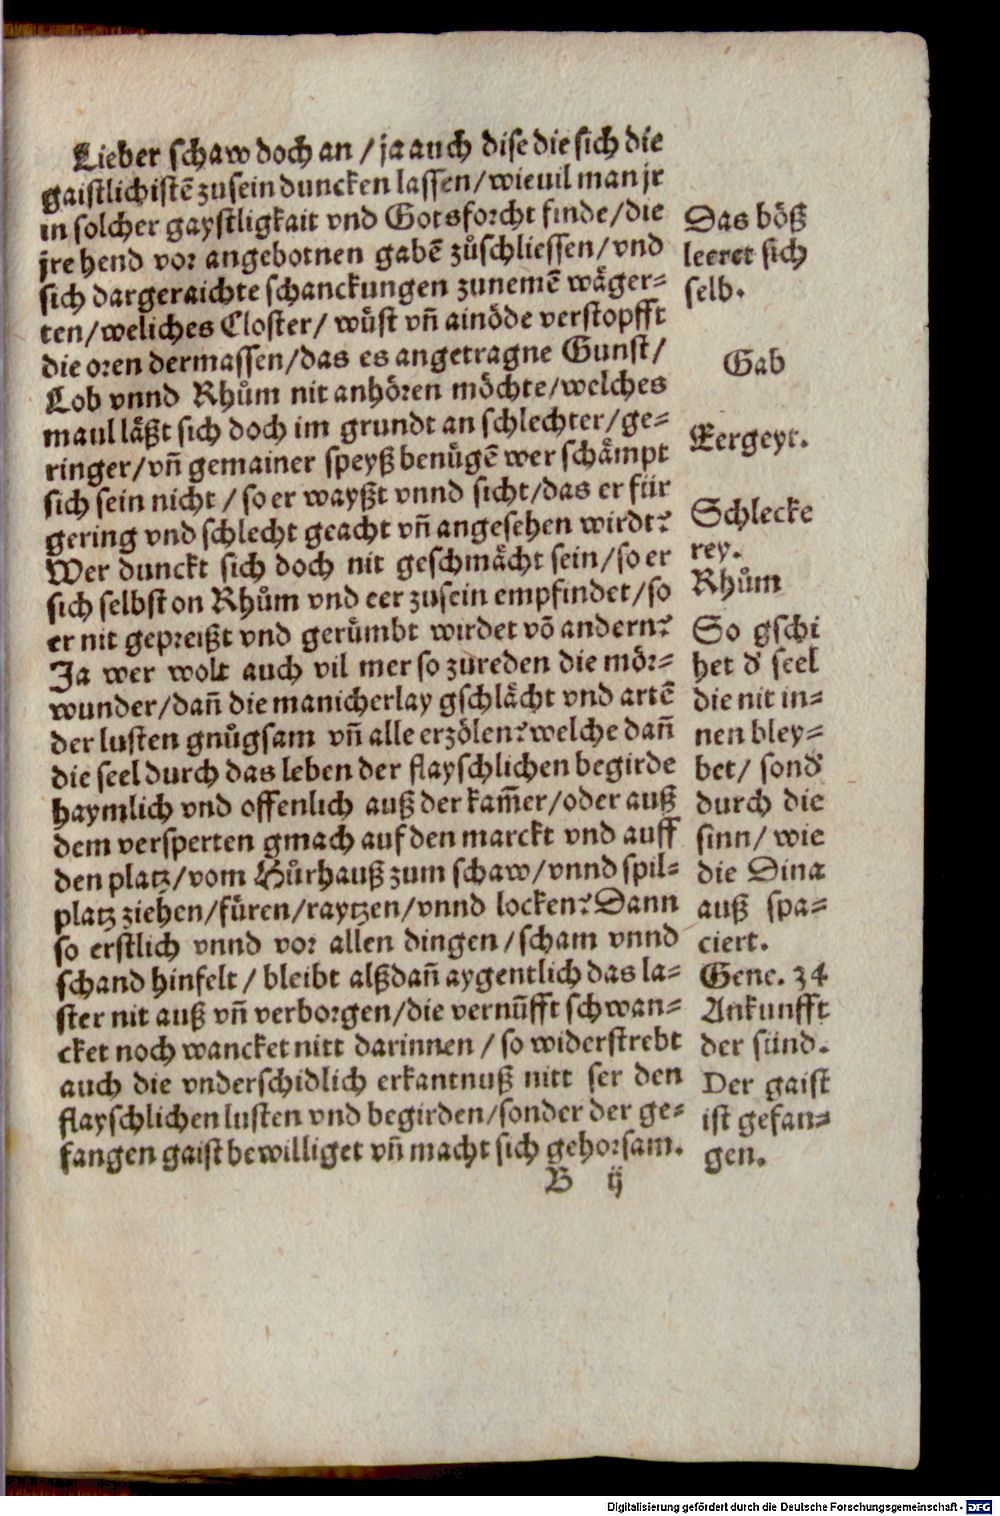 Lieber schaw doch an / ja auch dise die sich die
gaistlichistē zu sein duncken lassen / wieuil man jr
in solcher gaystligkait vnd Gotsforcht finde / die
jre hend vor angebotnen gabē zůschliessen / vnd
sich dargeraichte schanckungen zunemē wäger-
ten / weliches Closter / wůst vn̄ ainöde verstopfft
die oren dermassen / das es angetragne Gunst /
Lob vnnd Rhům nit anhören möchte / welches
maul läßt sich doch im grundt an schlechter / ge-
ringer / vn̄ gemainer speyß benügē wer schämpt
sich sein nicht / so er wayßt vnnd sicht / das er für
gering vnd schlecht geacht vn̄ angesehen wirdt?
Wer dunckt sich doch nit geschmächt sein / so er
sich selbst on Rhům vnd eer zusein empfindet / so
er nit gepreißt vnd gerümbt wirdet vō andern?
Ja wer wolt auch vil mer so zureden die mör-
wunder / dan̄ die manicherlay gschlächt vnd artē
der lusten gnůgsam vn̄ alle erzölen? welche dan̄
die seel durch das leben der flayschlichen begirde
haymlich vnd offenlich auß der kam̄er / oder auß
dem versperten gmach auf den marckt vnd auff
den platz / vom Hůrhauß zum schaw / vnnd spil-
platz ziehen / füren / raytzen / vnnd locken? Dann
so erstlich vnnd vor allen dingen / scham vnnd
schand hinfelt / bleibt alßdan̄ aygentlich das la-
ster nit auß vn̄ verborgen / die vernūfft schwan-
cket noch wancket nitt darinnen / so widerstrebt
auch die vnderschidlich erkantnuß nitt ser den
flayschlichen lusten vnd begirden / sonder der ge-
fangen gaist bewilliget vn̄ macht sich gehorsam.
B ij
Das böß
leeret sich
selb.
Gab
Eergeyt.
Schlecke
rey.
Rhům
So gschi
het d' seel
die nit in-
nen bley-
bet / sond'
durch die
sinn / wie
die Dina
auß spa-
ciert.
Gene. 34
Ankunfft
der sünd.
Der gaist
ist gefan-
gen.
Digitalisierung gefördert durch die Deutsche Forschungsgemeinschaft - DFG